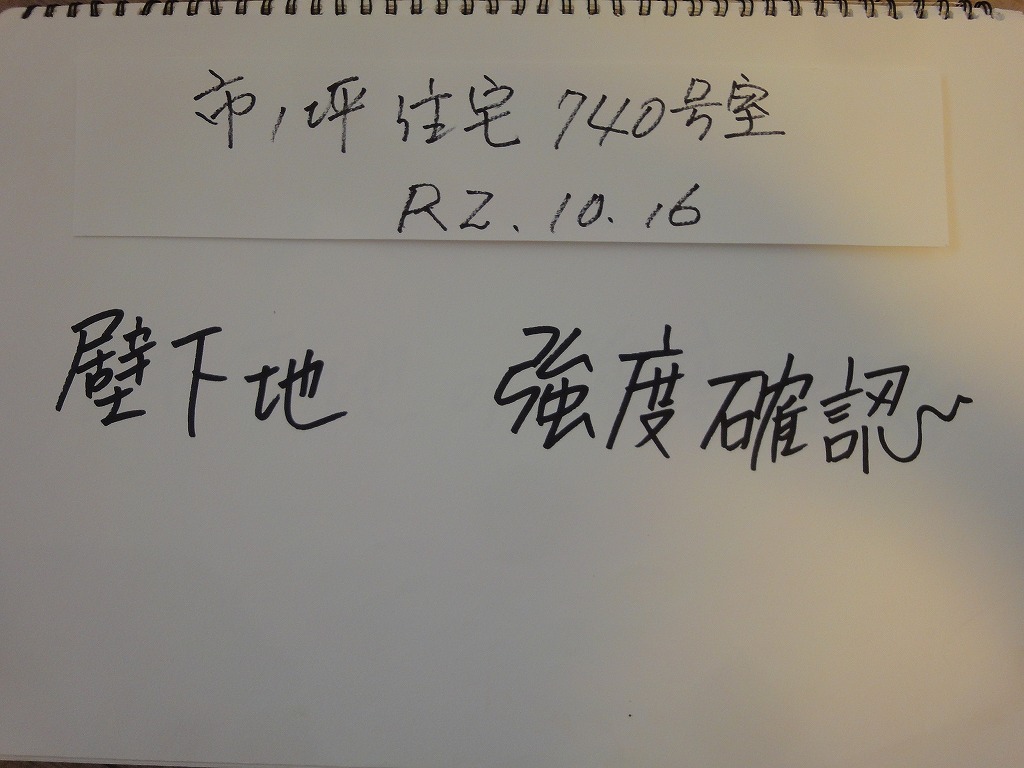 市ノ坪住宅740号室
R2.10.16
壁下地 強度確認